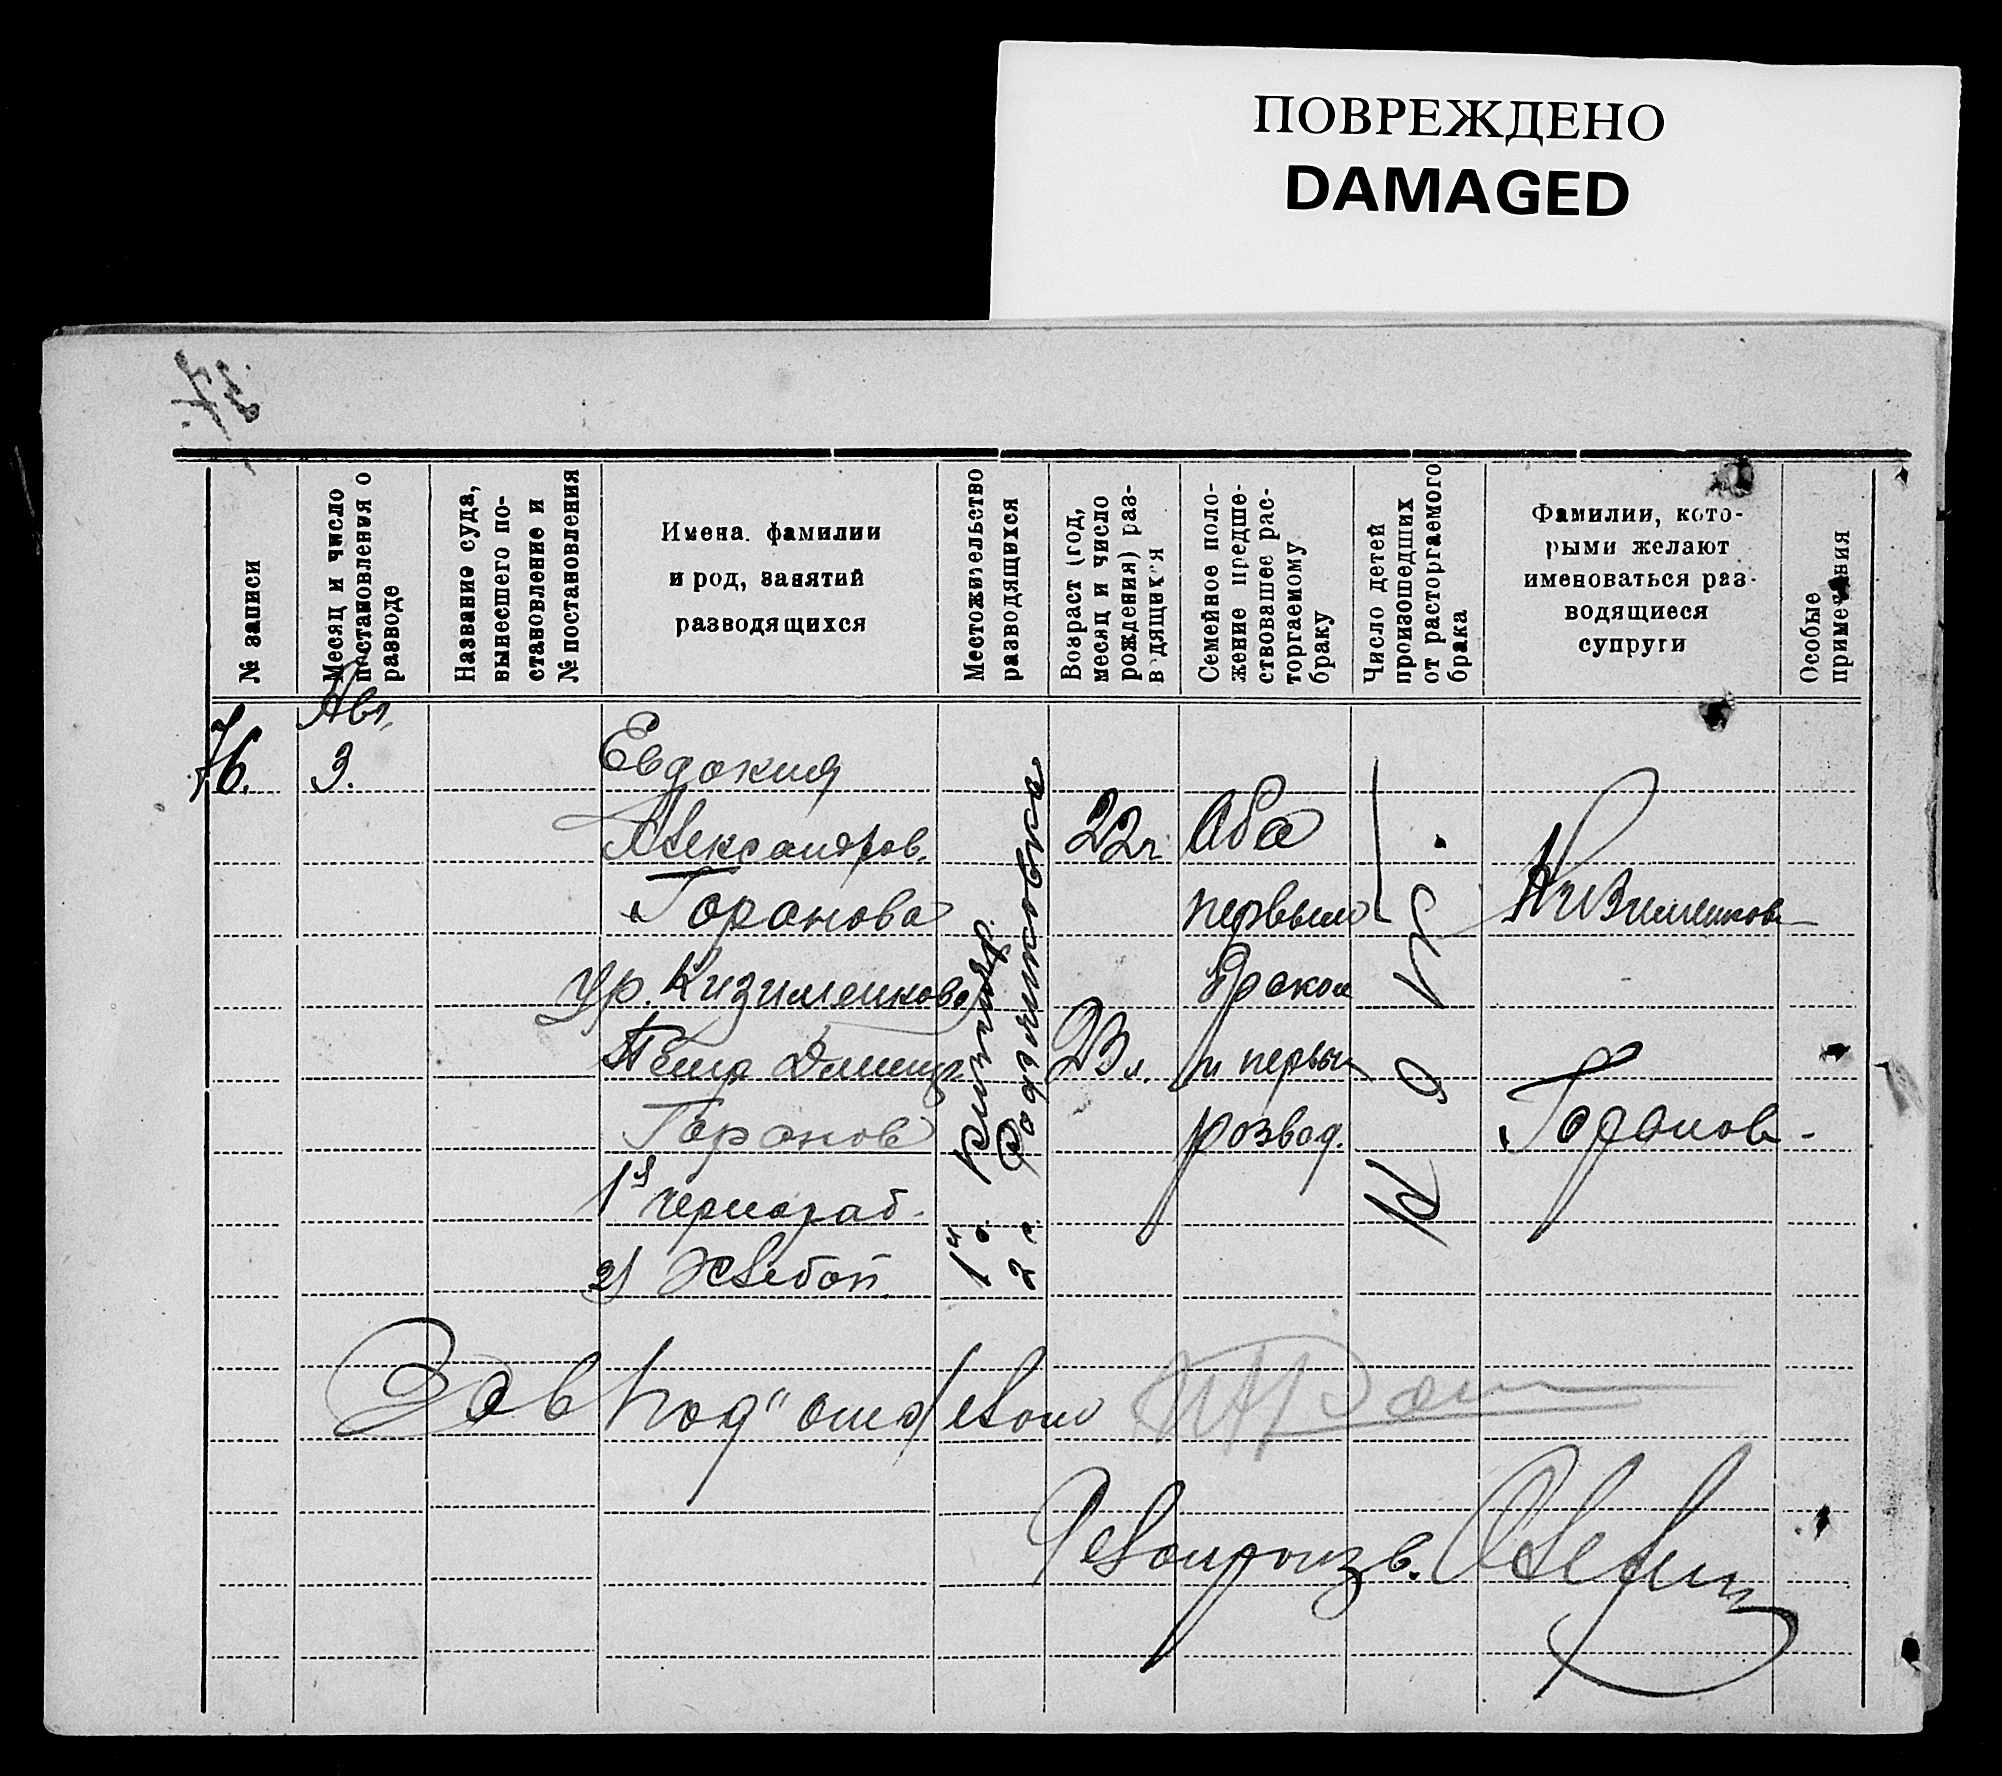 ПОВРЕЖДЕНО
DAMAGED
№ записи
Месяц и число
постановления о
разводе
Название суда,
вынесшего по-
становление и
№ постановления
Имена. фамилии
и род, занятий
разводящихся
Местожительство
разводящихся
Возраст (год,
месяц и число
рождения) раз-
водящихся
Семейное поло-
жение предше-
ствовавшее рас-
торгаемому
браку
Число детей
происшедших
от расторгаемого
брака
Фамилии, кото-
рыми желают
именоваться раз-
водящиеся
супруги
Особые
примечания
76.
Авг.
3.
Евдокия
Александров.
Горанова
ур. Кизименкова
Петр Дмитр.
Горанов
1я чернораб.
2) Хлебоп.
1я с.
2 с. Родниковка
22 г.
23 л.
Оба
первым
браком
и первы
розвод.
Нет
Кизименкова
Горанов.
Зав Под"отделом
Делопроизв.